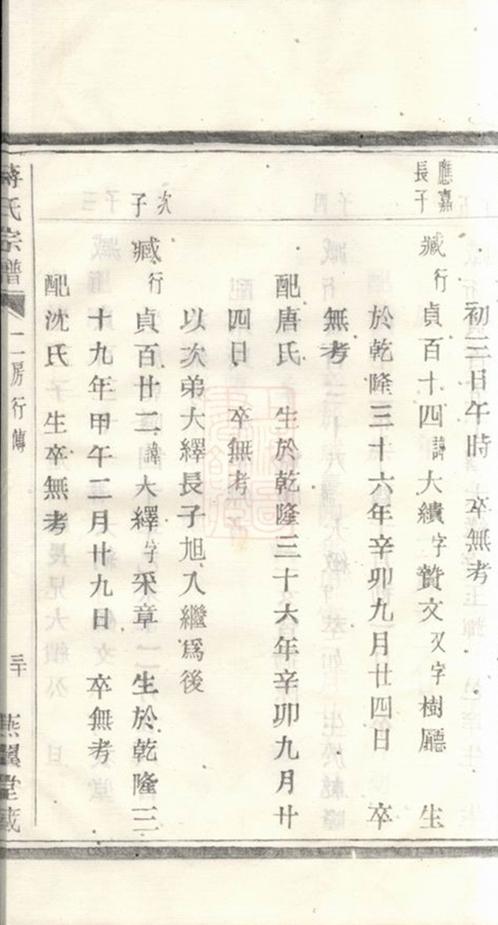 初三日午時 卒無考
應嘉
長子
臧行貞百十四諱大纘字贊文又字樹廳 生
於乾隆三十六年辛卯九月廿四日 卒
無考
配唐氏 生於乾隆三十六年辛卯九月廿
四日 卒無考
以次弟大繹長子旭入繼爲後
次
子
臧行貞百廿二諱大繹字采章 生於乾隆三
十九年甲午二月廿九日 卒無考
配沈氏 生卒無考
蔣氏宗譜 二房行傳 三十 燕翼堂藏